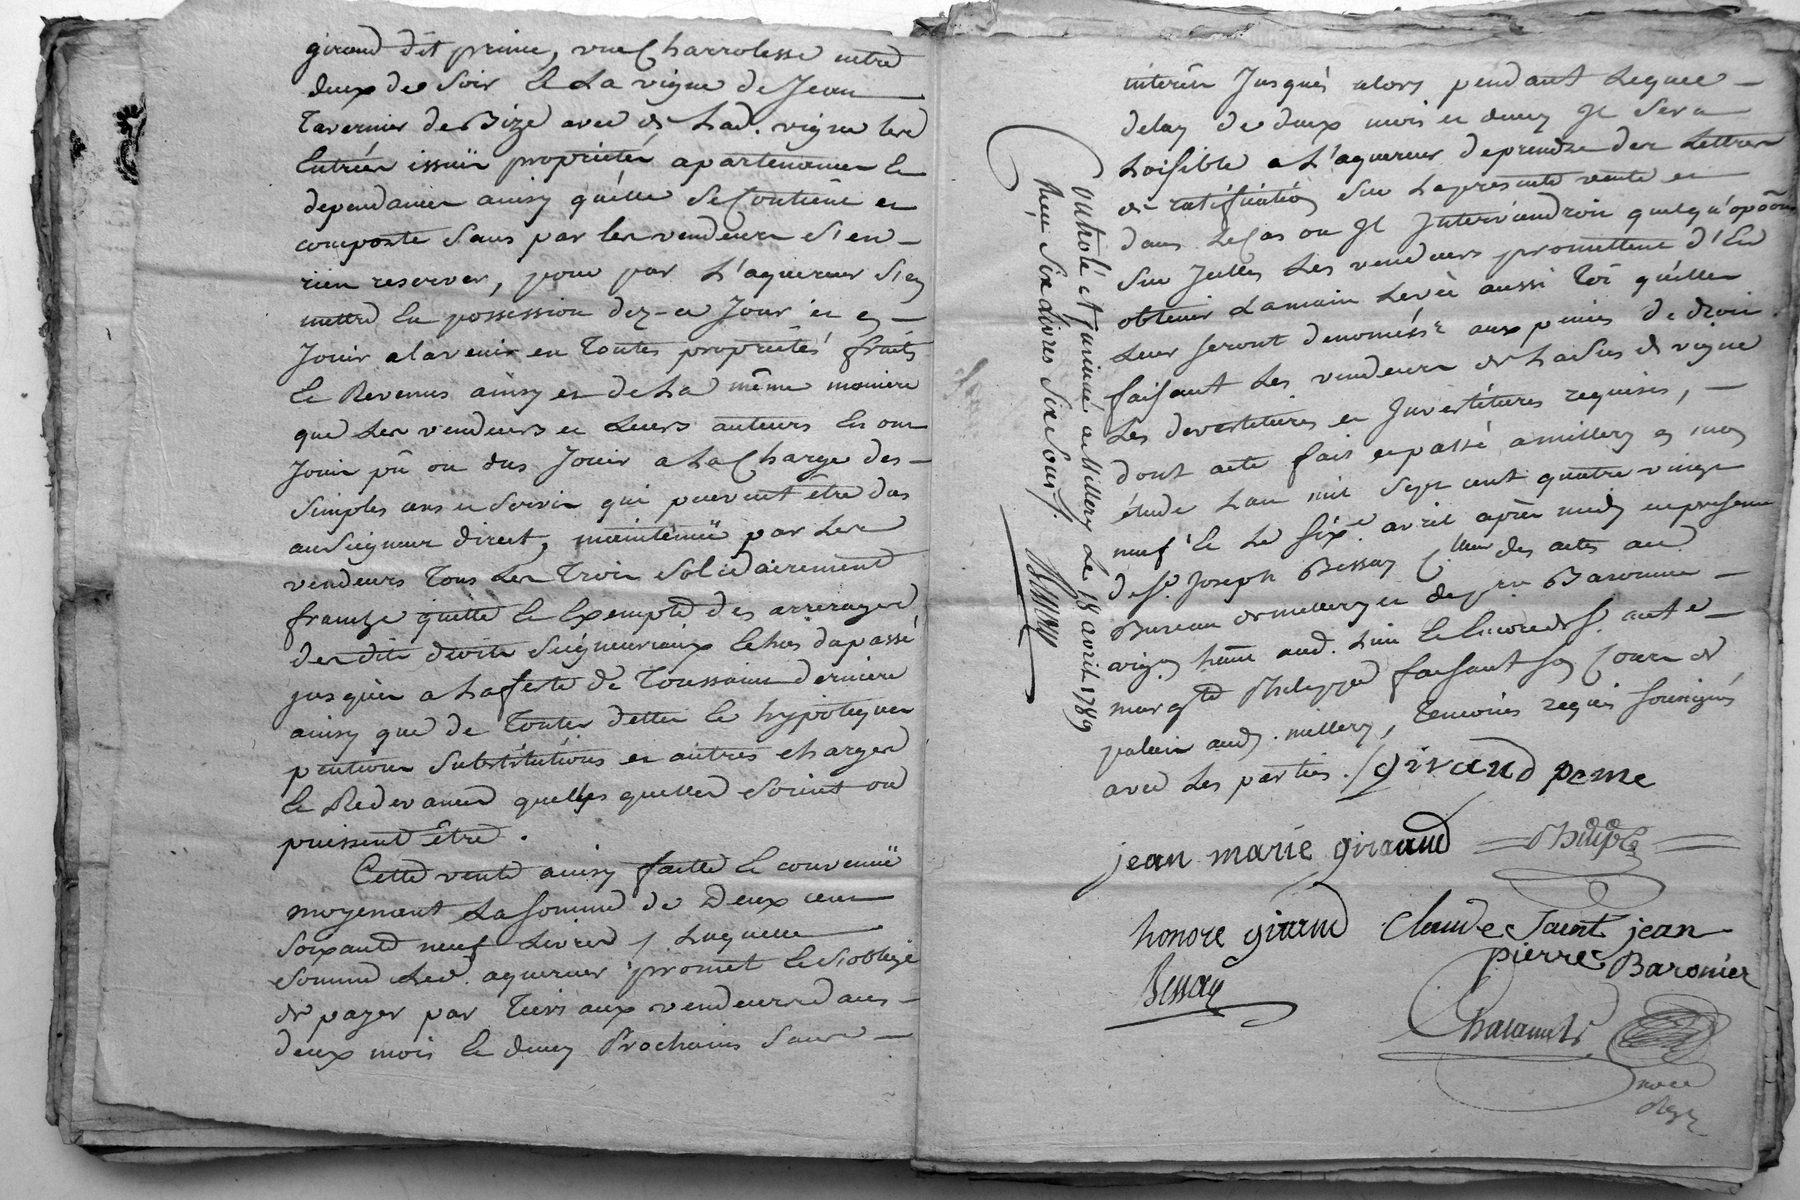 giraud dit prince, une Charrolesse entre
deux de soir Et La vigne de Jean
Tavernier de Bize avec de Lad. vigne les
Entrées issuë proprietés apartenances Et
dependances ainsy quelle se Contient et
comporte sans par les vendeurs S'en
rien reserver, pour par L'aquereur S'en
mettre En possession dez-ce Jour et en
Jouir alavenir en Toutes proprietés fruits
Et Revenus ainsy et de La même maniere
que Les vendeurs et Leurs auteurs En ont
Joui pû ou dus Jouir a La Charge des
simples cens et servis qui peuvent être dus
au Seigneur direct, maintenuë par Les
vendeurs Tous Les Trois solidairement
franche quitte Et Exempte des arrerages
desdits droits Seigneuriaux Echus du passé
jusques a La feste de Toussaint derniere
ainsy que de Toutes dettes Et hypoteques
pentions substitutions et autres charges
Et Redevances quelles quelles soient ou
puissent Être.
Cette vente ainsy faitte Et convenuë
moyenant La somme de Deux cent
soixante neuf Livres /. Laquelle
somme Led. aquereur promet Et s'oblige
de payer par Tiers aux vendeurs dans
deux mois Et demy Prochains sans
interêts Jusques alors pendant Lequel
delay de deux mois et demy Il sera
Loisible a L'aquereur de prendre des Lettres
de ratification sur La presente vente et
dans Le Cas ou Il Interviendroit quelqu'opôon
sur Icelles Les vendeurs promettent d'En
obtenir La main Levée aussi Tôt quelles
Leur seront denoncées aux peines de droit
faisant Les vendeurs de Ladite vigne
Les devestitures et Investitures requises,
dont acte fait et passé a millery en mon
étude L'an mil sept cent quatre vingt
neuf Et Le six. avril après midy en presence
de S. Joseph Bessay C.lleur des actes au
Bureau de millery et de
avec Les parties. / giraud peme
jean marie giraud Philippe
honore giraud Claude Saint jean
pierre Baronier
Bessay
Controlé et insinué a Millery Le 18 avril 1789
Reçu Six Livres Six Sous /.
Bessay